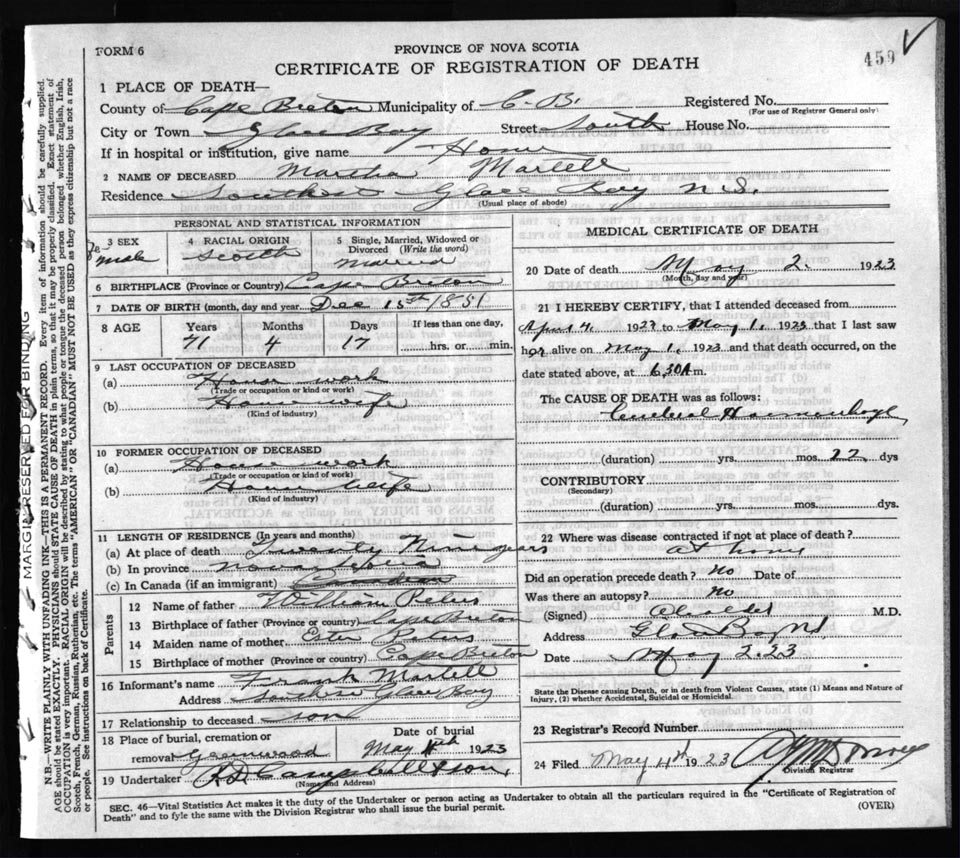 FORM 6
PROVINCE OF NOVA SCOTIA
CERTIFICATE OF REGISTRATION OF DEATH
459
1 PLACE OF DEATH—
County of Cape Breton Municipality of C. B. Registered No.
(For use of Registrar General only)
City or Town Glace Bay Street South House No.
If in hospital or institution, give name Home
2 NAME OF DECEASED Martha Martell
Residence Glace Bay N.S.
(Usual place of abode)
PERSONAL AND STATISTICAL INFORMATION
3 SEX Fe male
4 RACIAL ORIGIN Scotch
5 Single, Married, Widowed or Divorced (Write the word) Married
6 BIRTHPLACE (Province or Country) Cape Breton
7 DATE OF BIRTH (month, day and year) Dec 15st 1851
8 AGE Years Months Days If less than one day,
71 4 17 hrs. or min.
9 LAST OCCUPATION OF DECEASED
(a) House work
(Trade or occupation or kind or work)
(b) House wife
(Kind of industry)
10 FORMER OCCUPATION OF DECEASED
(a) House work
(Trade or occupation or kind of work)
(b) House wife
(Kind of industry)
11 LENGTH OF RESIDENCE (In years and months)
(a) At place of death Twenty Nine years
(b) In province Nova Scotia
(c) In Canada (if an immigrant) Canadian
Parents
12 Name of father William
13 Birthplace of father (Province or country) Cape Breton
14 Maiden name of mother
15 Birthplace of mother (Province or country) Cape Breton
16 Informant's name Frank Martell
Address Glace Bay
17 Relationship to deceased son
18 Place of burial, cremation or removal Greenwood
Date of burial May 4th 1923
19 Undertaker Campbell & son,
(Name and Address)
MEDICAL CERTIFICATE OF DEATH
20 Date of death May 2. 1923
(Month, day and year)
21 I HEREBY CERTIFY, that I attended deceased from
April 4, 1923 to May 1, 1923 that I last saw
her alive on May 1, 1923 and that death occurred, on the
date stated above, at 6.30 A m.
The CAUSE OF DEATH was as follows:
Cerebral Haemorrhage
(duration) yrs. mos. 27 dys
CONTRIBUTORY
(Secondary)
(duration) yrs. mos. dys.
22 Where was disease contracted if not at place of death?
at home
Did an operation precede death? No Date of
Was there an autopsy? No
(Signed) M.D.
Address Glace Bay NS
Date May 2. 23
State the Disease causing Death, or in death from Violent Causes, state (1) Means and Nature of Injury, (2) whether Accidental, Suicidal or Homicidal.
23 Registrar's Record Number
24 Filed May 4th 1923
Division Registrar
SEC. 46—Vital Statistics Act makes it the duty of the Undertaker or person acting as Undertaker to obtain all the particulars required in the "Certificate of Registration of
Death" and to fyle the same with the Division Registrar who shall issue the burial permit. (OVER)
MARGIN RESERVED FOR BINDING
N.B.—WRITE PLAINLY WITH UNFADING INK—THIS IS A PERMANENT RECORD. Every item of information should be carefully supplied.
AGE should be stated EXACTLY. PHYSICIANS should STATE CAUSE OF DEATH in plain terms, so that it may be properly classified. Exact statement of
OCCUPATION is very important. RACIAL ORIGIN will be described by stating to what people or tongue the deceased person belonged whether English, Irish,
Scotch, French, German, Russian, Ruthenian, etc. The terms "AMERICAN" OR "CANADIAN" MUST NOT BE USED as they express citizenship but not a race
or people. See instructions on back of Certificate.